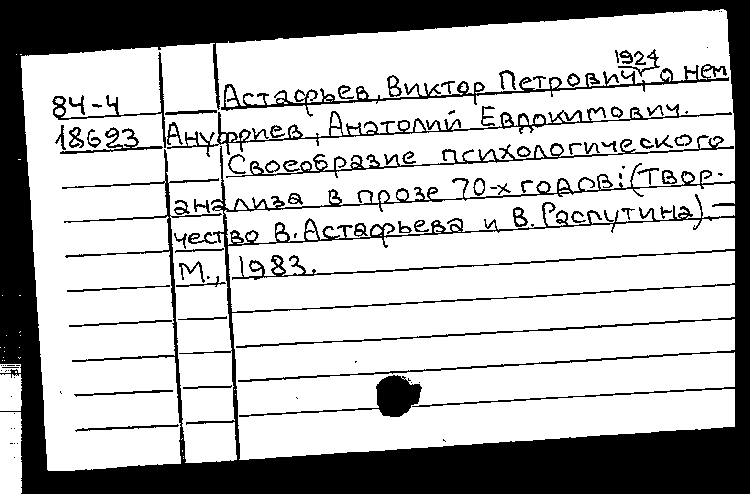 1924
84-4 Астафьев, Виктор Петрович, о нем
18623 Ануфриев, Анатолий Евдокимович.
Своеобразие психологического
анализа в прозе 70-х годов: (Твор-
чество В. Астафьева и В. Распутина). –
М., 1983.